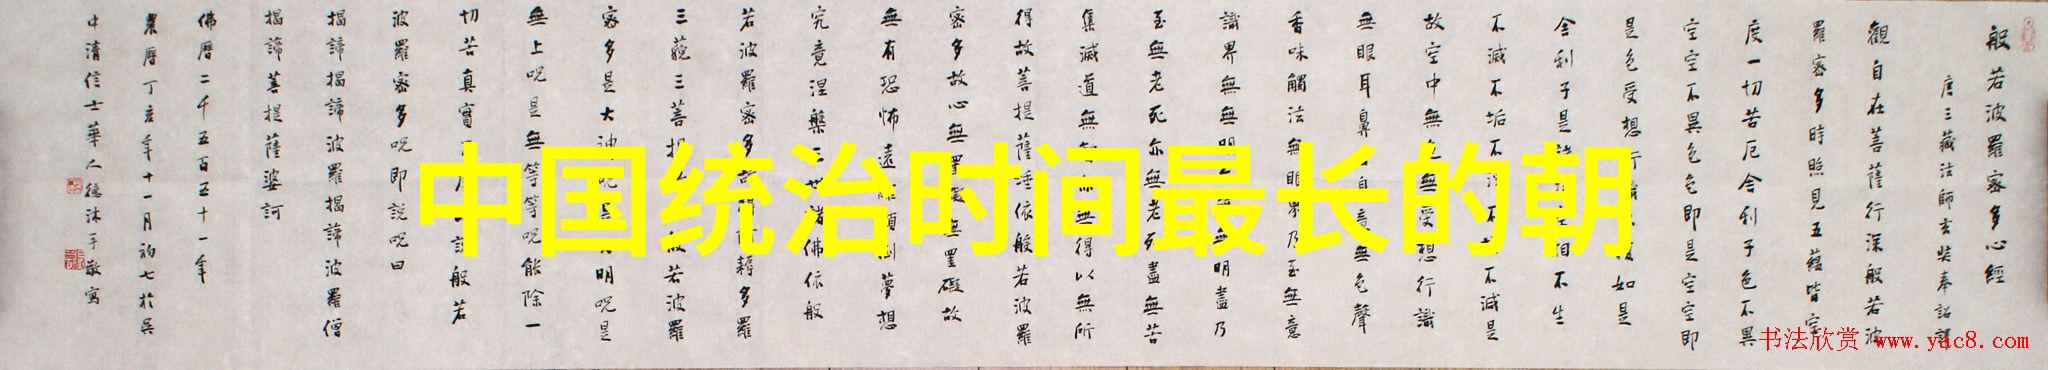 般若波羅密多心經
唐三藏法師玄奘奉詔譯
觀自在菩薩行深般若波
羅密多時照見五蘊皆空
度一切苦厄舍利子色不異
空空不異色色即是空空即
是色受想行識亦復如是
舍利子是諸法空相不生
不滅不垢不淨不增不減是
故空中無色無受想行識
無眼耳鼻舌身意無色聲
香味觸法無眼界乃至無意
識界無無明亦無無明盡乃
至無老死亦無老死盡無苦
集滅道無智亦無得以無所
得故菩提薩埵依般若波羅
密多故心無罣礙無罣礙故
無有恐怖遠離顛倒夢想
究竟涅槃三世諸佛依般
若波羅密多故得阿耨多羅
三藐三菩提故知般若波羅
密多是大神呪是大明呪是
無上呪是無等等呪能除一
切苦真實不虛故說般若
波羅密多呪即說呪曰
揭諦揭諦波羅揭諦波羅僧
揭諦菩提薩婆訶
佛曆二千五百五十一年
農曆丁亥年十一月初七於吳
中清信士華人德沐手敬寫
中国统治时间最长的朝
书法欣赏 www.yac8.com